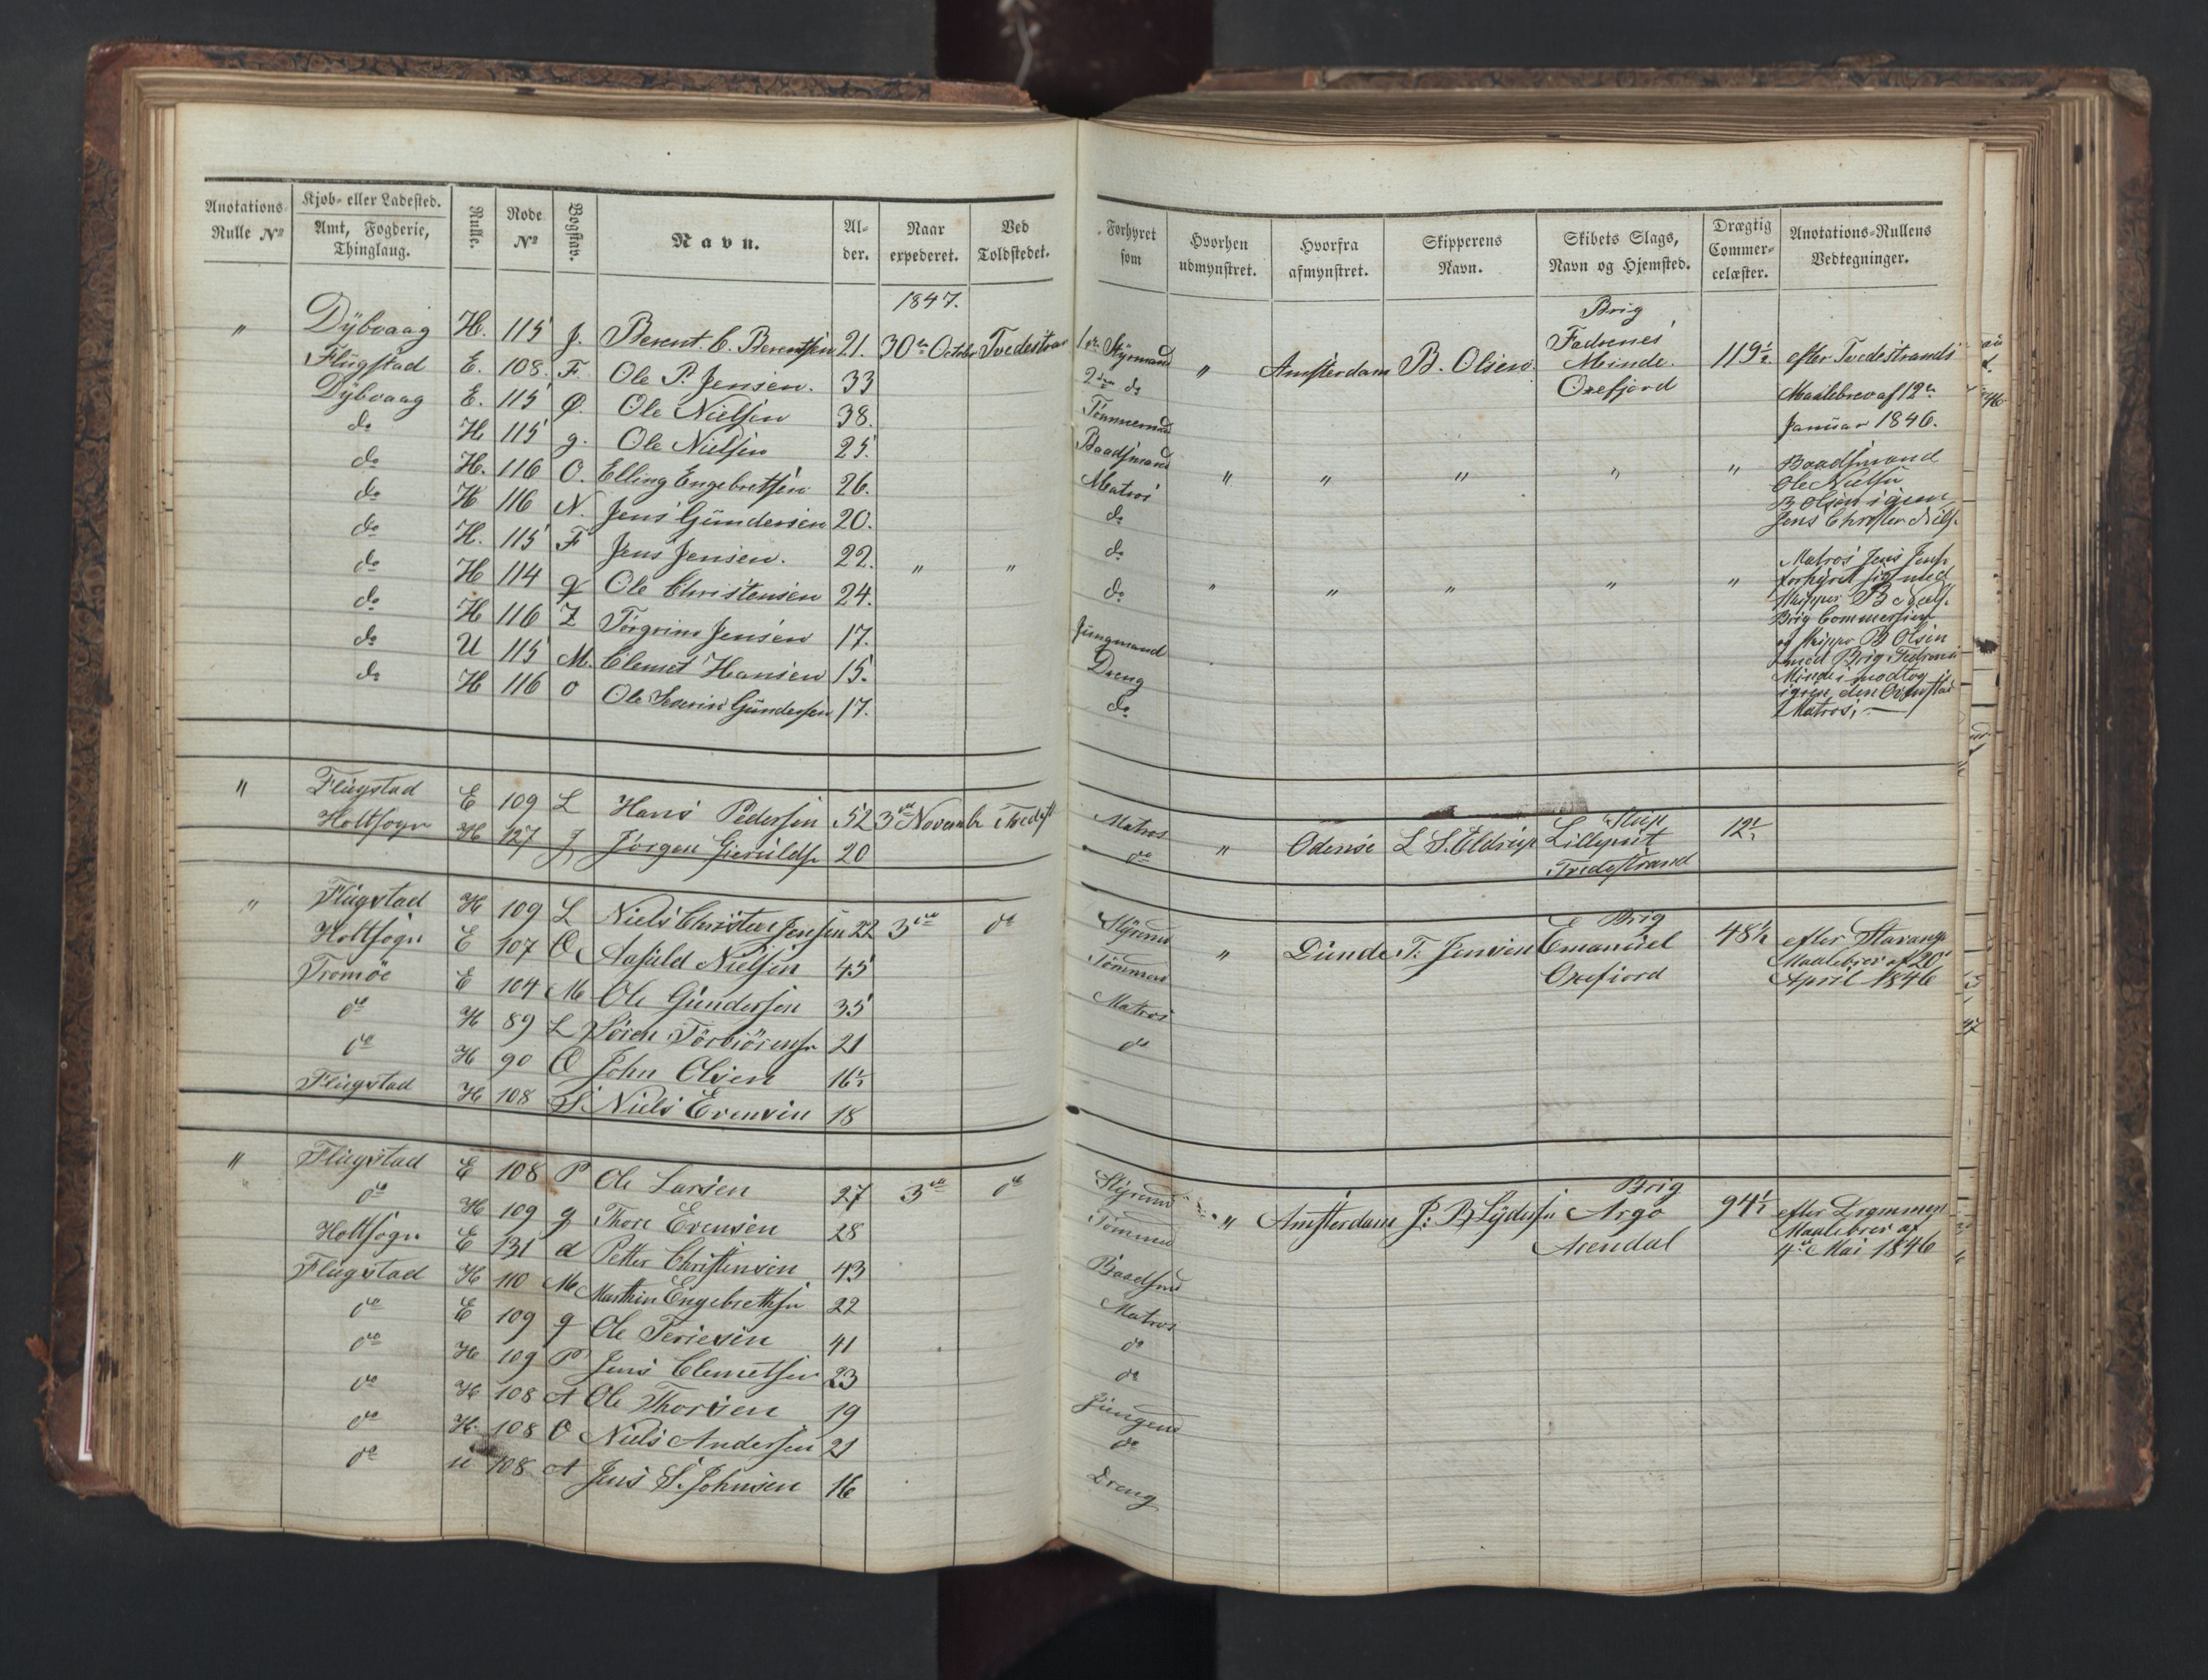 Anotations- Rulle No
Kjøb- eller Ladested.
Amt, Fogderie, Thinglaug.
Rulle.
Rode No
Bogstav.
Navn.
Al- der.
Naar expederet.
Ved Toldstedet.
Forhyret som
Hvorhen udmynstret.
Hvorfra afmynstret.
Skipperens Navn.
Skibets Slags, Navn og Hjemsted.
Drægtig Commer- celæster.
Anotations-Rullens Vedtegninger.
1847.
" Dybvaag H. 115 J. Berent. C. Berentsen 21. 30te October Tvedestran
Flugstad E. 108. F. Ole P. Jensen. 33
Dybvaag E. 115 Ø. Ole Nielsen 38.
do H 115 g. Ole Nielsen 25.
do H. 116 O. Elling Engebretsen 26.
do H 116 N. Jens Gundersen 20.
do H. 115 F Jens Jensen. 22. " "
do H 114 q Ole Christensen 24.
do H 116 Z Torgrim Jensen 17.
do U 115 M. Clemet Hansen 15.
do H 116 o Ole Severin Gundersen 17.
" Flugstad E 109 L Hans Pedersen 52 3die Novembr Tvedest
Holtsogn H 127 J Jörgen Gieruldsen 20
" Flugstad H 109 L Niels Christian Jensen 22 3die do
Holtsogn E 107 O Aasuld Nielsen 45
Tromöe E 104 M Ole Gundersen 35
do H 89 L Sören Törbiörnsen 21
do H 90 O John Olsen 16½
Flugstad H 108 S Niels Evensen 18
" Flugstad E 108 P Ole Larsen 27 3die do
do H 109 g Thore Evensen 28
Holtsogn E 131 d Petter Christensen 43
Flugstad H 110 M Marthin Engebrethsen 22
do E 109 g Ole Teriesen 41
do H 109 P Jens Clemetsen 23
do H 108 A Ole Thorsen 19
do H. 108 O Niels Andersen 21
do u 108 A Jens S. Johnsen 16
Brig
1ste Styrmand " Amsterdam B. Olsen. Fadrenes Minde. Oxefjord 119½ efter Tvedestrands
2den do Maalebrev af 12te
Tömmermand Januar 1846.
Baadsmand
Matros " " " " " Baadsmand
Ole Nielsen
B Olsen igien
Jens Christen Niels.
do
do
Matros Jens Jens.
do " " " " " forhyret sig med
Skipper B
Brig Commersien
Jungmand og skipper B Olsen
Dreng med Brig Fedrenes
do Minde modtog
igien den
Matros.
Slup
Matros " Odense L S. Eldrup Lilleput 12½
do Tvedestrand
Brig
Styrmd " Dunde T: Jensen Emanuel 48½ efter Stavang
Tömmmd Oxefiord Maalebrev af 20
Matros April 1846
do
Brig
Styrmd " Amsterdam J: B Lydersen Argo 94½ efter Drammen
Tömmmd Arendal Maalebrev af
4de Mai 1846
Baadsmd
Matros
do
do
Jungmd
do
Dreng